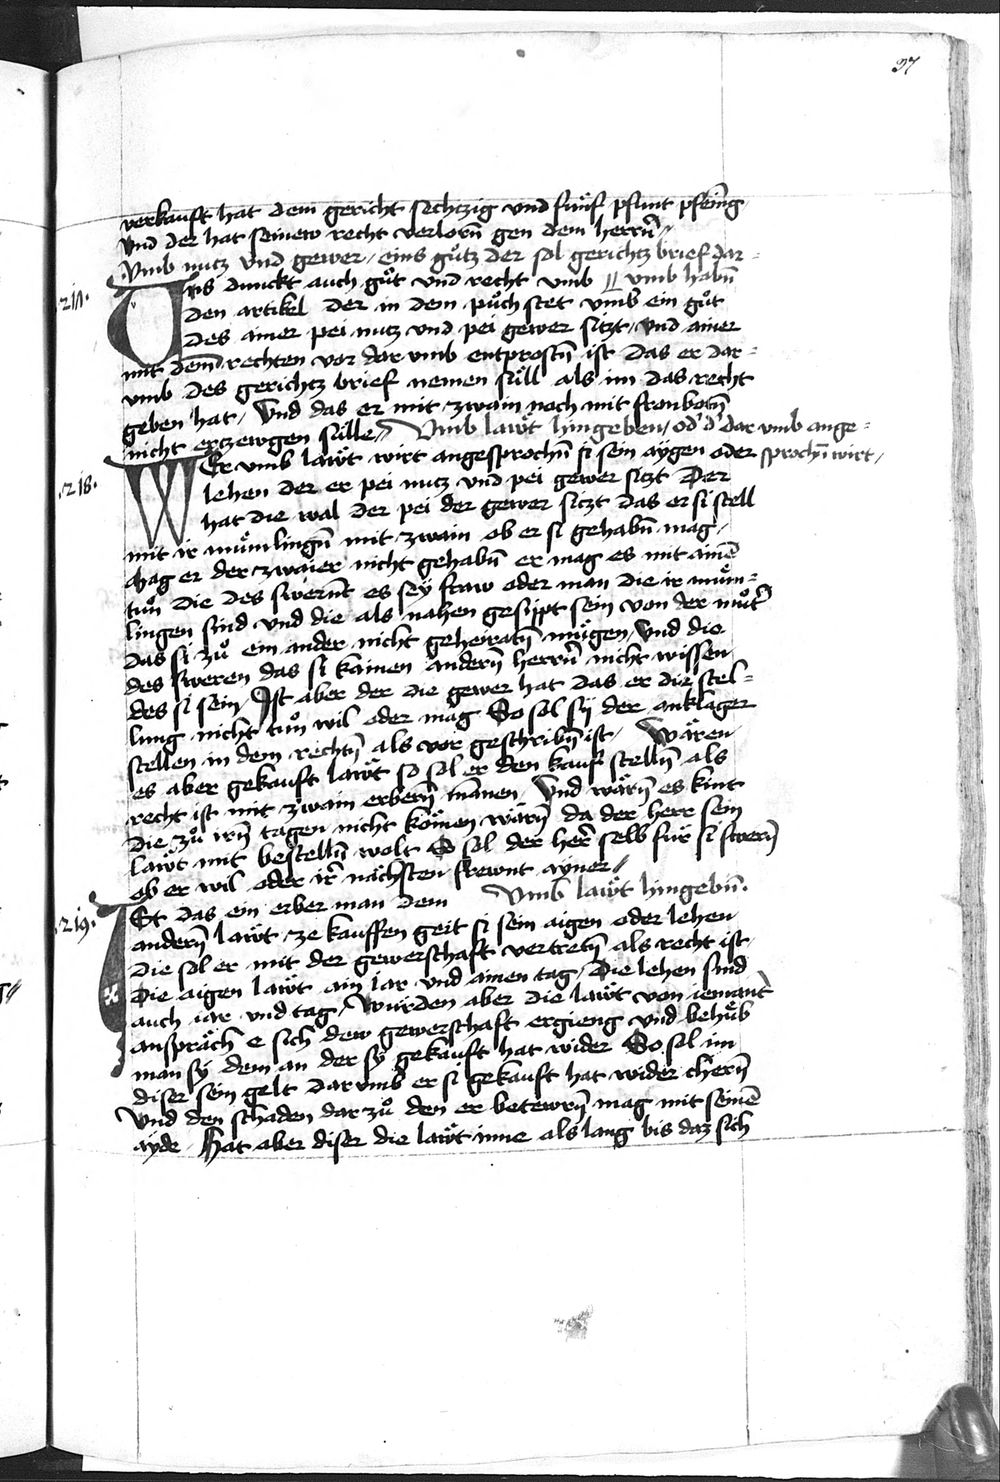 97
verkauft hat dem gericht sechtzig vnd fuͤnf pfunt pfeinͤg
vnd der hat seinew recht verlorñ gen dem herrñ //
Vmb nutz vnd gewer / eins guͦtz der sol gerichtz brief dar=
.217. Vns dunckt auch guͦt vnd recht vmb // vmb habñ
den artikel der in dem puͦch stet vmb ein guͦt
des ainer pei nutz vnd pei gewer sitzt / vnd ainer
mit dem̄ rechten vor dar vmb entprostñ ist das er dar=
vmb des gerichtz brief nemen suͤll als im das recht
geben hat / Vnd das er mit zwain noch mit fronbotñ
nicht ertzewgen suͤlle // Vmb laẅt hingeben / od' d' dar vmb ange=
.218. Wer vmb laẅt wirt angesprochñ si sein aÿgen oder sprochñ wirt /
lehen der er pei nutz vnd pei gewer sitzt Der
hat die wal der pei der gewer sitzt das er si stell
mit ir muͦmlingñ mit zwain ob er si gehabñ mag /
Mag er der zwaier nicht gehabñ er mag es mit ainē
tuͦn die des swernt es seÿ fraw oder man die ir muͦm=
lingen sind vnd die als nahen gesippt sein von der muͦt'
das si zuͦ ein ander nicht geheiratñ muͤgen / Vnd die
des sweren das si kainen andern̄ herrñ nicht wissen
des si sein / Ist aber der die gewer hat das er die stel=
lung nicht tuͦn wil oder mag So sol sÿ der anklager
stellen in dem rechtñ als vor geschribñ ist / Waͤren
es aber gekauft laẅt so sol er den kauf stellñ als
recht ist mit zwain erberñ mannen / Vnd waͤrñ es kint
die zuͦ irñ tagen nicht koͤmen waͤrñ da der herr sein
laẅt mit bestellñ wolt So sol der her' selb fuͤr si swerñ
ob er wil oder ir' naͤchsten frewnt aÿner //
.219. Ist das ein erber man dem Vmb laẅt hingebñ.
andern̄ laẅt ze kauffen geit si sein aigen oder lehen
die sol er mit der gewerschaft vertretñ als recht ist
Die aigen laẅt ain iar vnd ainen tag / Die lehen sind
auch iar vnd tag / Wurden aber die laẅt von iemant
anspraͤch e sich dew gewerschaft ergieng vnd behuͤb
man sÿ dem an der sÿ gekauft hat wider So sol im
diser sein gelt darvmb er si gekauft hat wider cherñ
Vnd den schaden dar zuͦ den er betewrñ mag mit seinē
aÿde / Hat aber diser die laẅt inne als lang bis daz sich